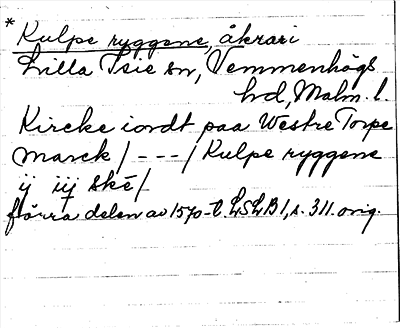 * Kulpe ryggene, åkrar i
Lilla Isie sn, Vemmenhögs
hd, Malm. l.
Kircke iordt paa Westre Torpe
marck / - - - / Kulpe ryggene
ij iij Ske /
förra delen av 1570-t. LSLB 1, s. 311. orig.